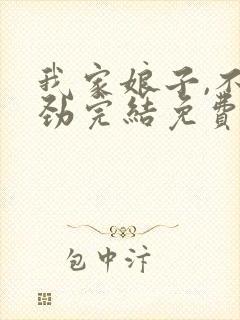 我家娘子,不
劲完結免費
包中汴